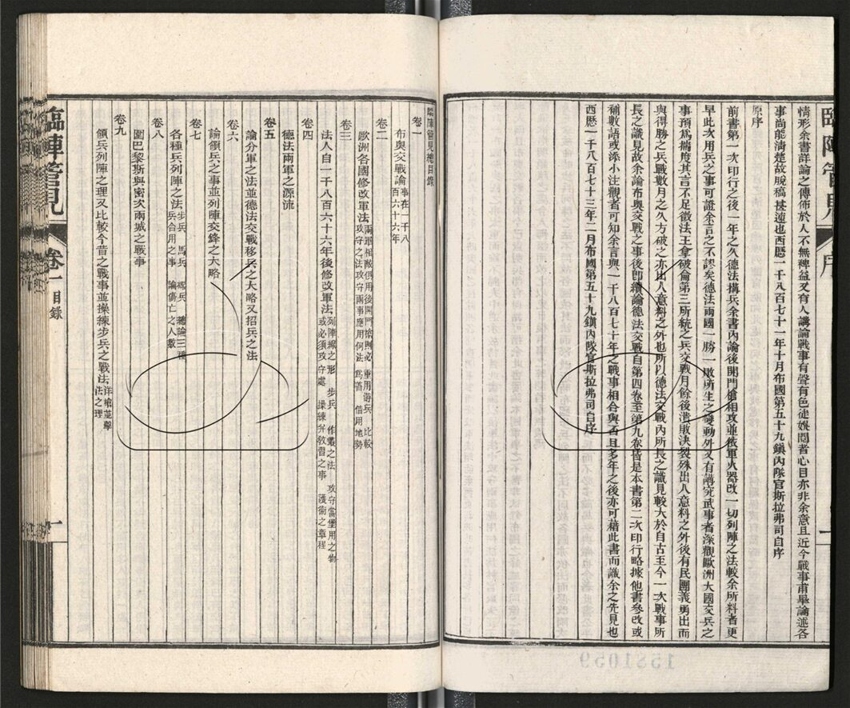 情形余書詳論之傳佈於人不無裨益又有人講論戰事有聲有色徒娛閱者心目亦非余意且近今戰事甫畢論述各
事尚能清楚故脫稿甚速也西曆一千八百七十一年十月布國第五十九鎮內隊官斯拉弗司自序
原序
前書第一次印行之後一年之久德法搆兵余書內論後開門槍相攻並後軍火器改一切列陣之法較余所料者更
早此次用兵之事可證余言之不謬矣德法兩國一勝一敗所生之變動外又有講究武事者深觀歐洲大國交兵之
事預為揣度其言不足徵法王拿破侖第三所統之兵交戰月餘後潰敗決裂殊出人意料之外後有民團義勇出而
與得勝之兵戰數月之久方破之亦出人意料之外也所以德法交戰內所長之識見較大於自古至今一次戰事所
長之識見故余論布奧交戰之事後卽續論德法交戰自第四卷至第九卷皆是本書第二次印行略據他書參改或
補數語或添小注觀者可知余言與一千八百七十年之戰事相合與否且多年之後亦可藉此書而識余之先見也
西曆一千八百七十三年二月布國第五十九鎮內隊官斯拉弗司自序
臨陣管見 序
臨陣管見總目錄
卷一
布奧交戰論 事在一千八百六十六年
卷二
歐洲各國修改軍法
卷三
法人自一千八百六十六年後修改軍法
卷四
德法兩軍之源流
卷五
論分軍之法並德法交戰移兵之大略又招兵之法
卷六
論領兵之事並列陣交鋒之大略
卷七
各種兵列陣之法 步兵 馬兵 礮兵 總論三種兵合用之事 論傷亡之人數
卷八
圍巴黎斯與密次兩城之戰事
卷九
領兵列陣之理又比較今昔之戰事並操練步兵之戰法
臨陣管見 卷一 目錄 一
1581059